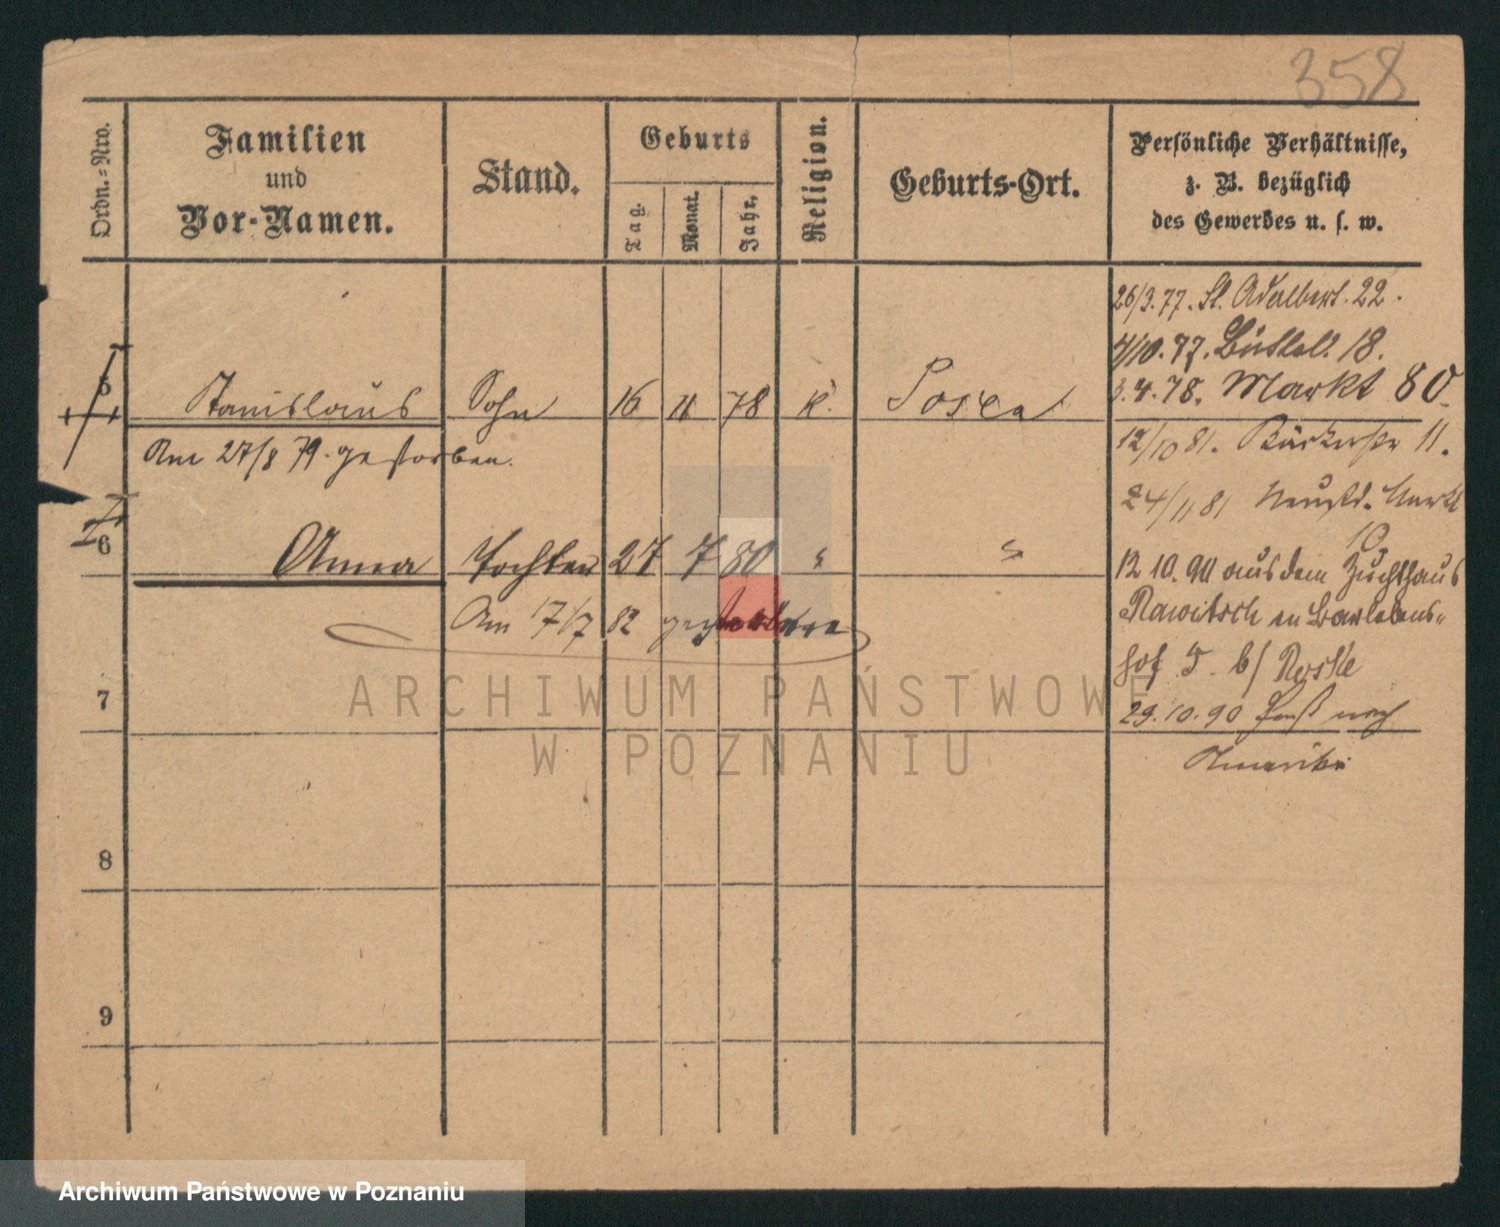 358
Ordn.=Nro.
Familien
und
Vor-Namen.
Stand.
Geburts
Tag.
Monat.
Jahr.
Religion.
Geburts-Ort.
Persönliche Verhältnisse,
z. B. bezüglich
des Gewerbes u. s. w.
26/3.77. St. Adalbert. 22.
4/10.77. Büttel. 18.
3.4.78. Markt 80
5 Stanislaus Sohn 16 11 78 k. Posen
Am 27/8 79. gestorben.
12/10 81. 11.
24/11 81 Neust. Markt
10
6 Anna Tochter 27 7 80 " "
12 10. 90 aus dem Zuchthaus
Rawitsch in Bartholds-
hof 5. b/
Am 17/7 82 gestorben
29.10.90 nach
Amerika
7
8
9
ARCHIWUM PAŃSTWOWE
W POZNANIU
Archiwum Państwowe w Poznaniu